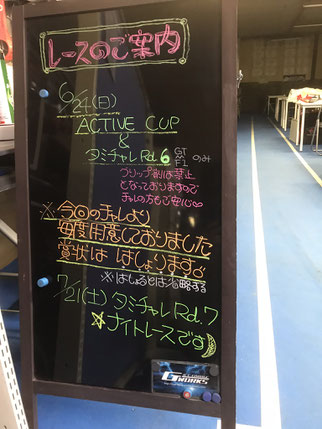 レースのご案内
6/24(日)
ACTIVE CUP
&
タミチャレRd.6 GT F1 のみ
グリップ剤は禁止
となっておりますので
チャレの方もご安心
※今回のチャレより
毎度用意しておりました
賞状は はしょります。
※はしょるとは省略する
7/21(土) タミチャレRd.7
☆ナイトレースです
G WORKS